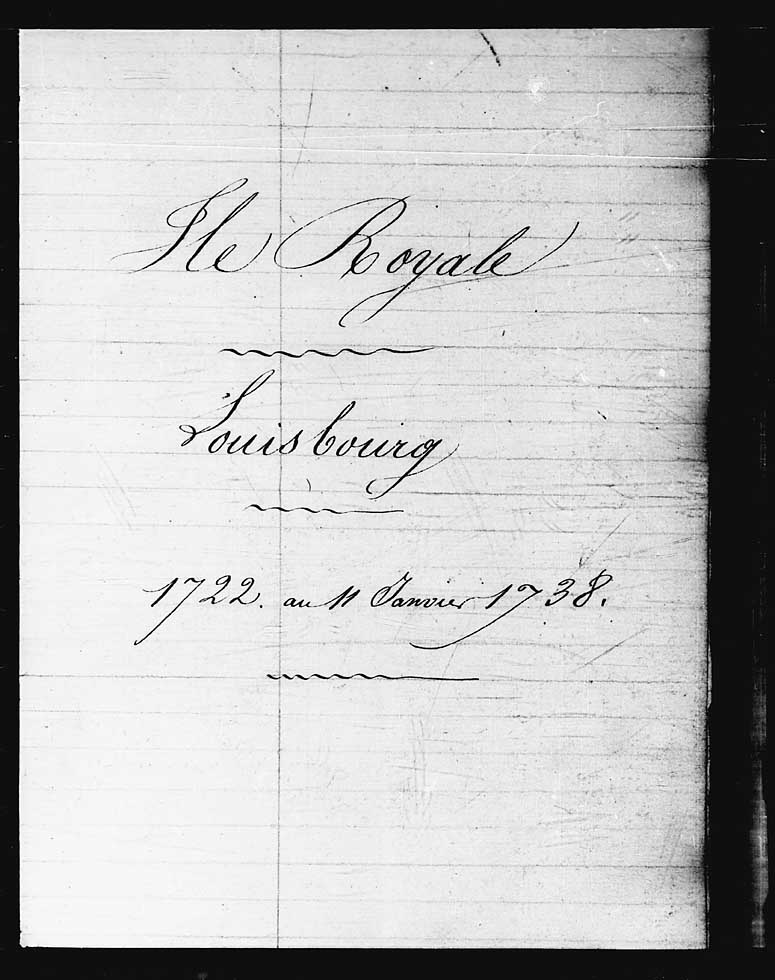 Ile Royale
Louisbourg
1722. au 11 Janvier 1738.